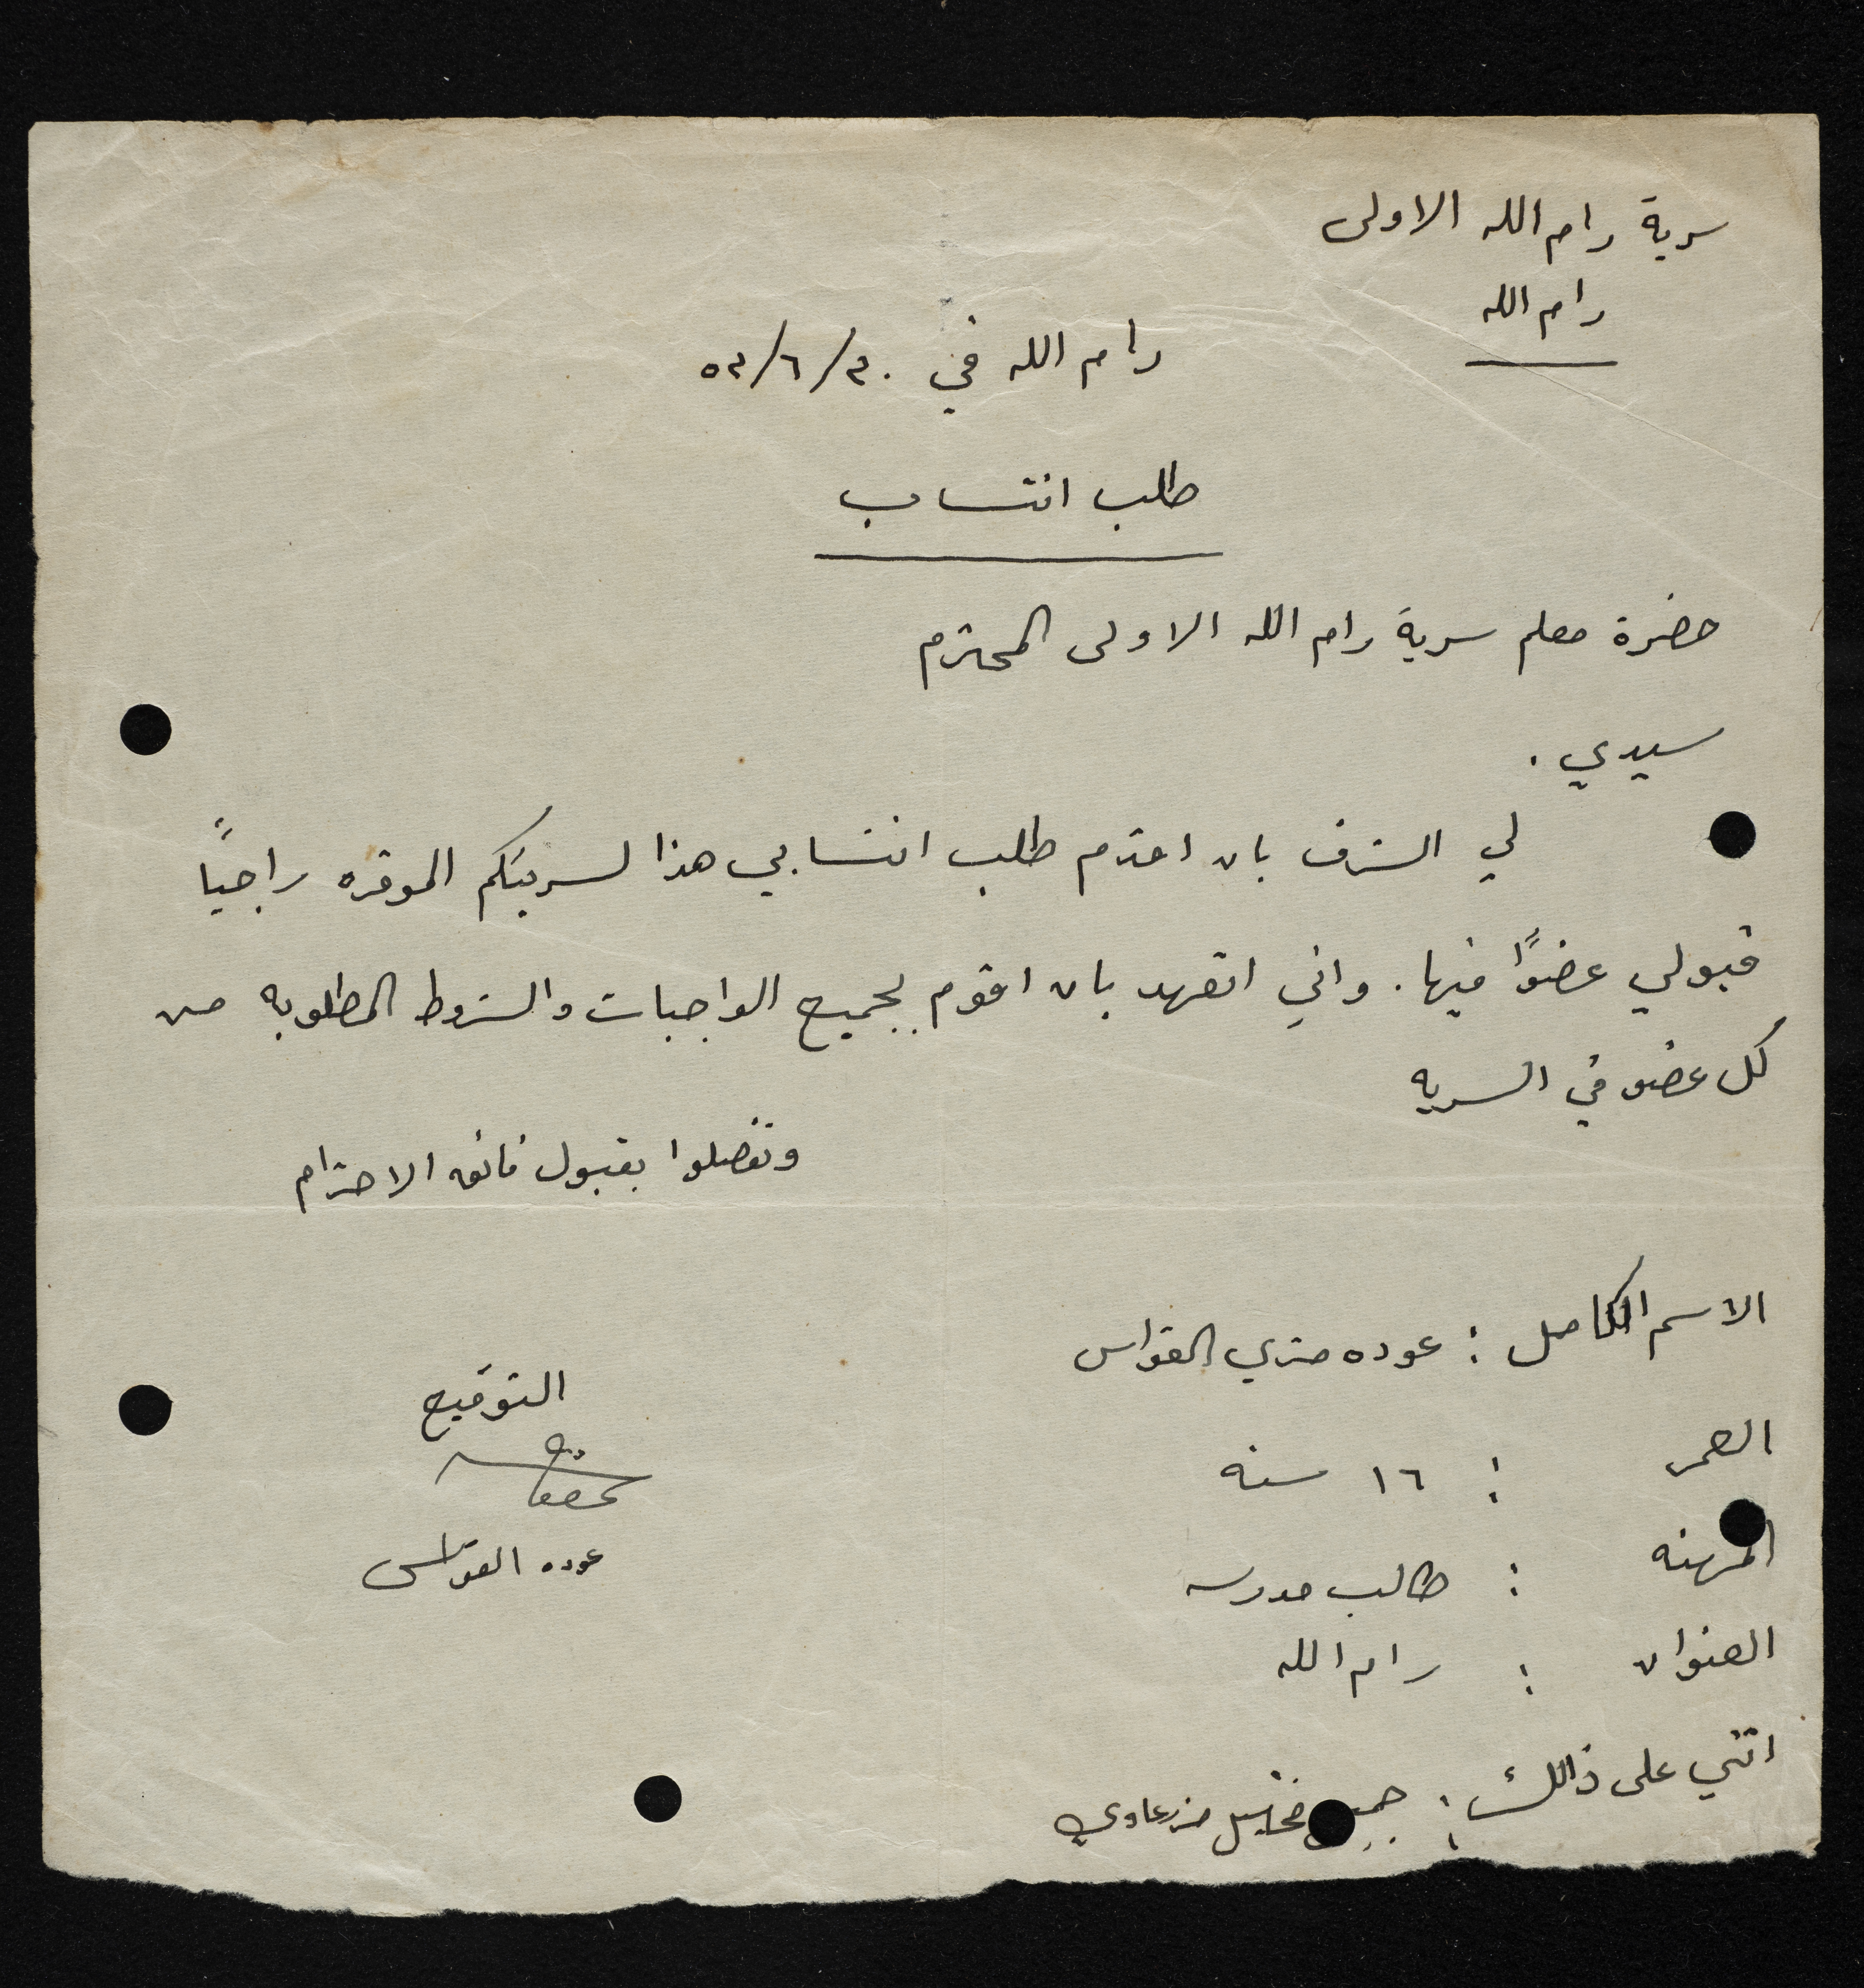 سرية رام الله الاولى
رام الله
رام الله في ٣٠/٦/٥٣
طلب انتساب
حضرة معلم سرية رام الله الاولى المحترم
سيدي .
لي الشرف بان اقدم طلب انتسابي هذا لسريتكم الموقره راجياً
قبولي عضوًا فيها . واني اتعهد بان اقوم بجميع الواجبات والشروط المطلوبه من
كل عضو في السريه
وتفضلوا بقبول فائق الاحترام
الاسم الكامل : عوده متري القواس
التوقيع
العمر : ١٦ سنه
عوده القواس
المهنه : طالب مدرسه
العنوان : رام الله
اثني على ذالك :